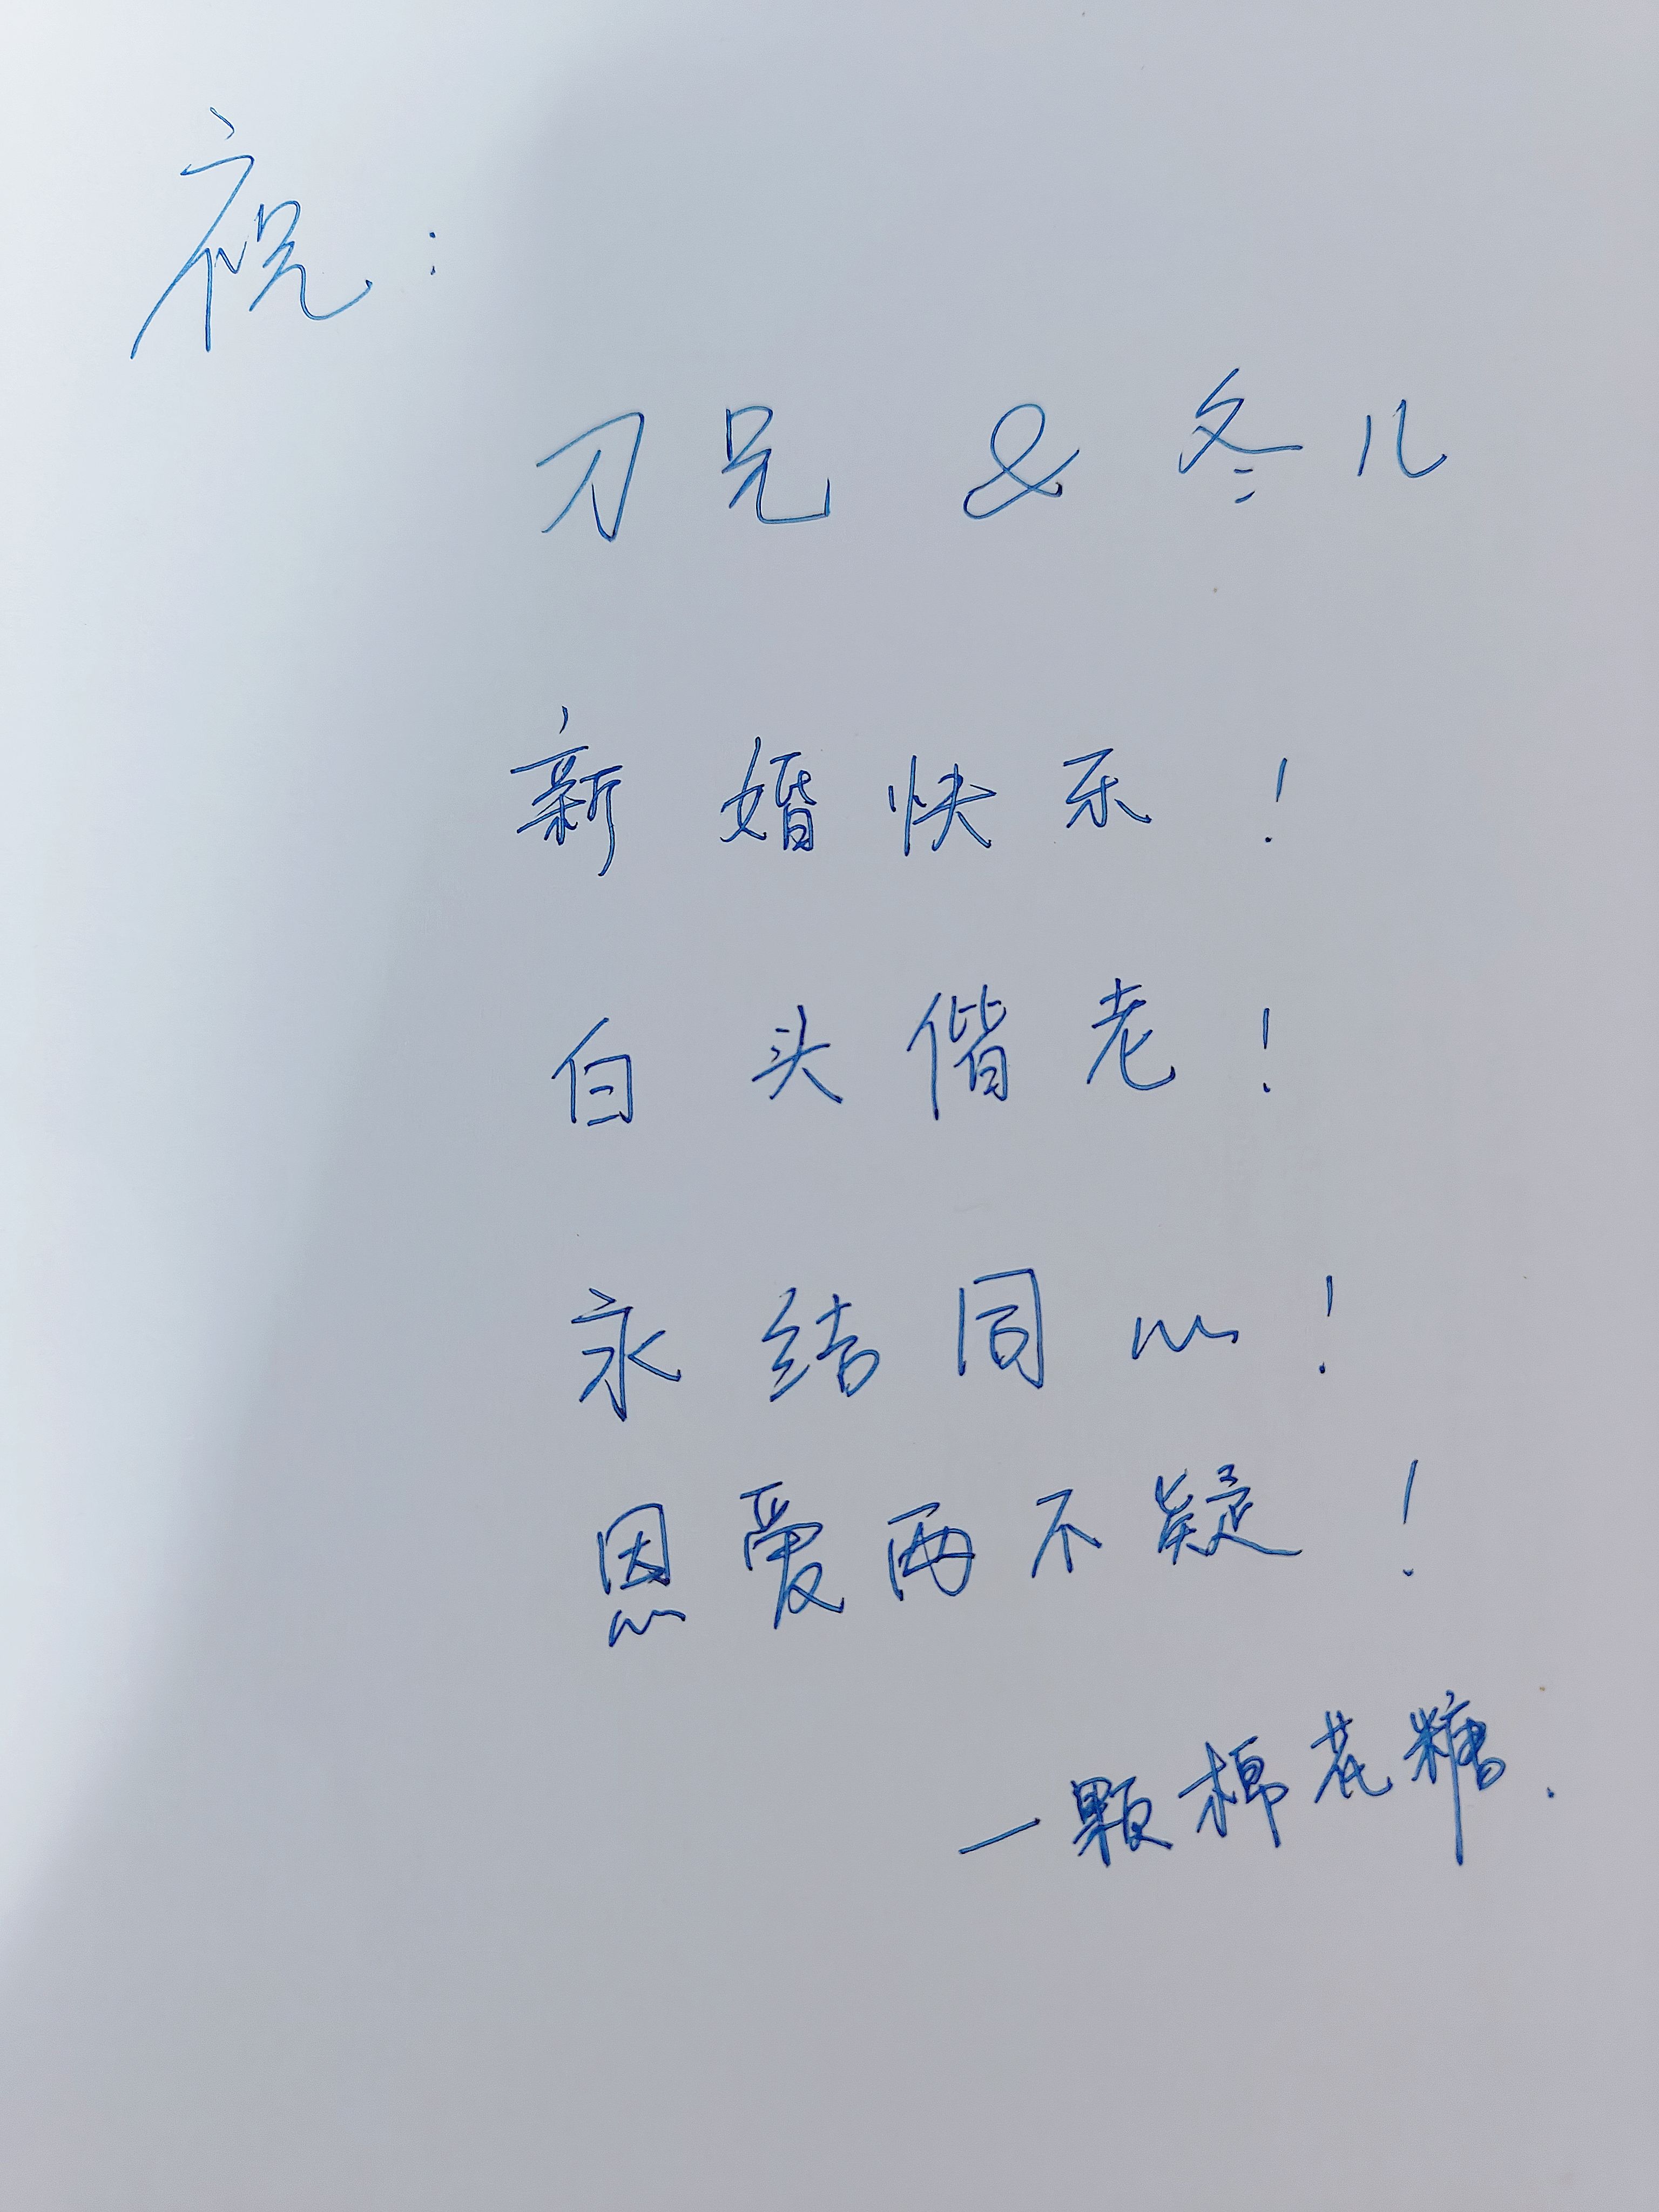 祝：
刀兄 & 冬儿
新婚快乐！
白头偕老！
永结同心！
恩爱两不疑！
一颗棉花糖.